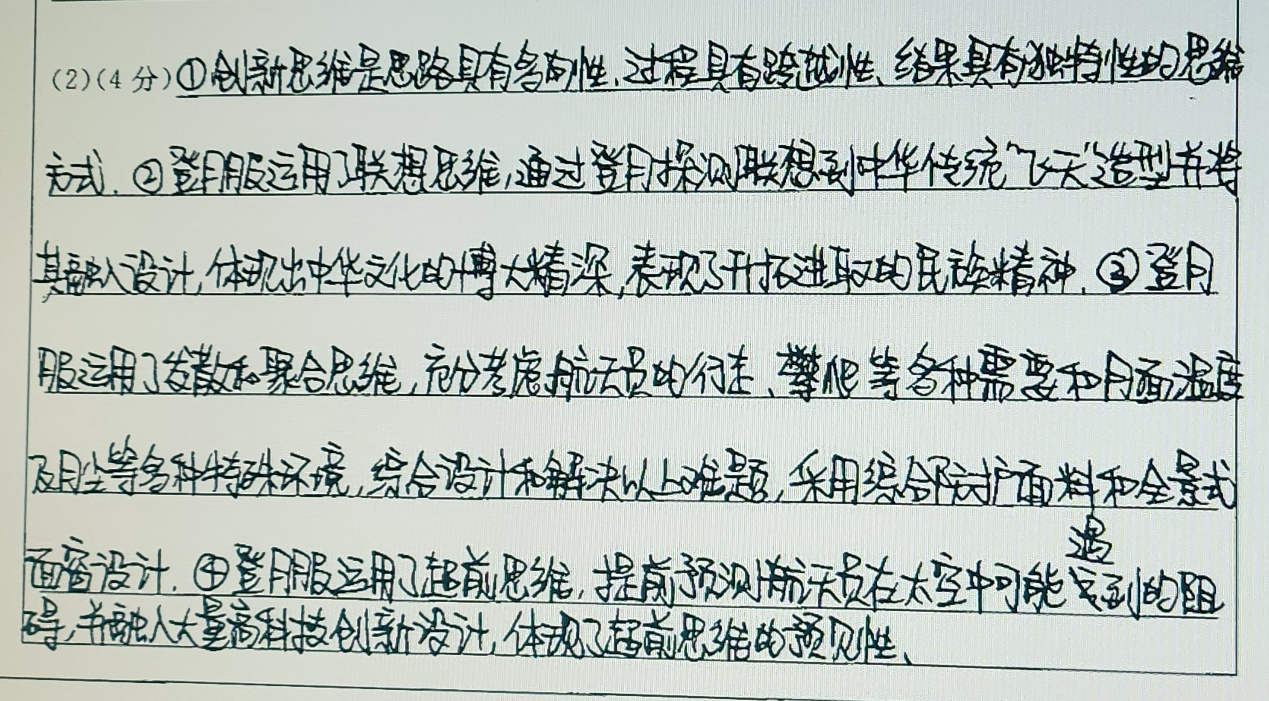 (2)(4分)①创新思维是思路具有多向性、过程具有跨越性、结果具有独特性的思维
方式.②登月服运用了联想思维,通过登月探测联想到中华传统“飞天”造型并将
其融入设计,体现出中华文化的博大精深,表现了开拓进取的民族精神.③登月
服运用了发散和聚合思维,充分考虑航天员的行走、攀爬等各种需要和月面温度
及月尘等各种特殊环境,综合设计和解决以上难题,采用综合防护面料和全景式
面窗设计.④登月服运用了超前思维,提前预测航天员在太空中可能遇到的阻
碍,并融入大量高科技创新设计,体现了超前思维的预见性、